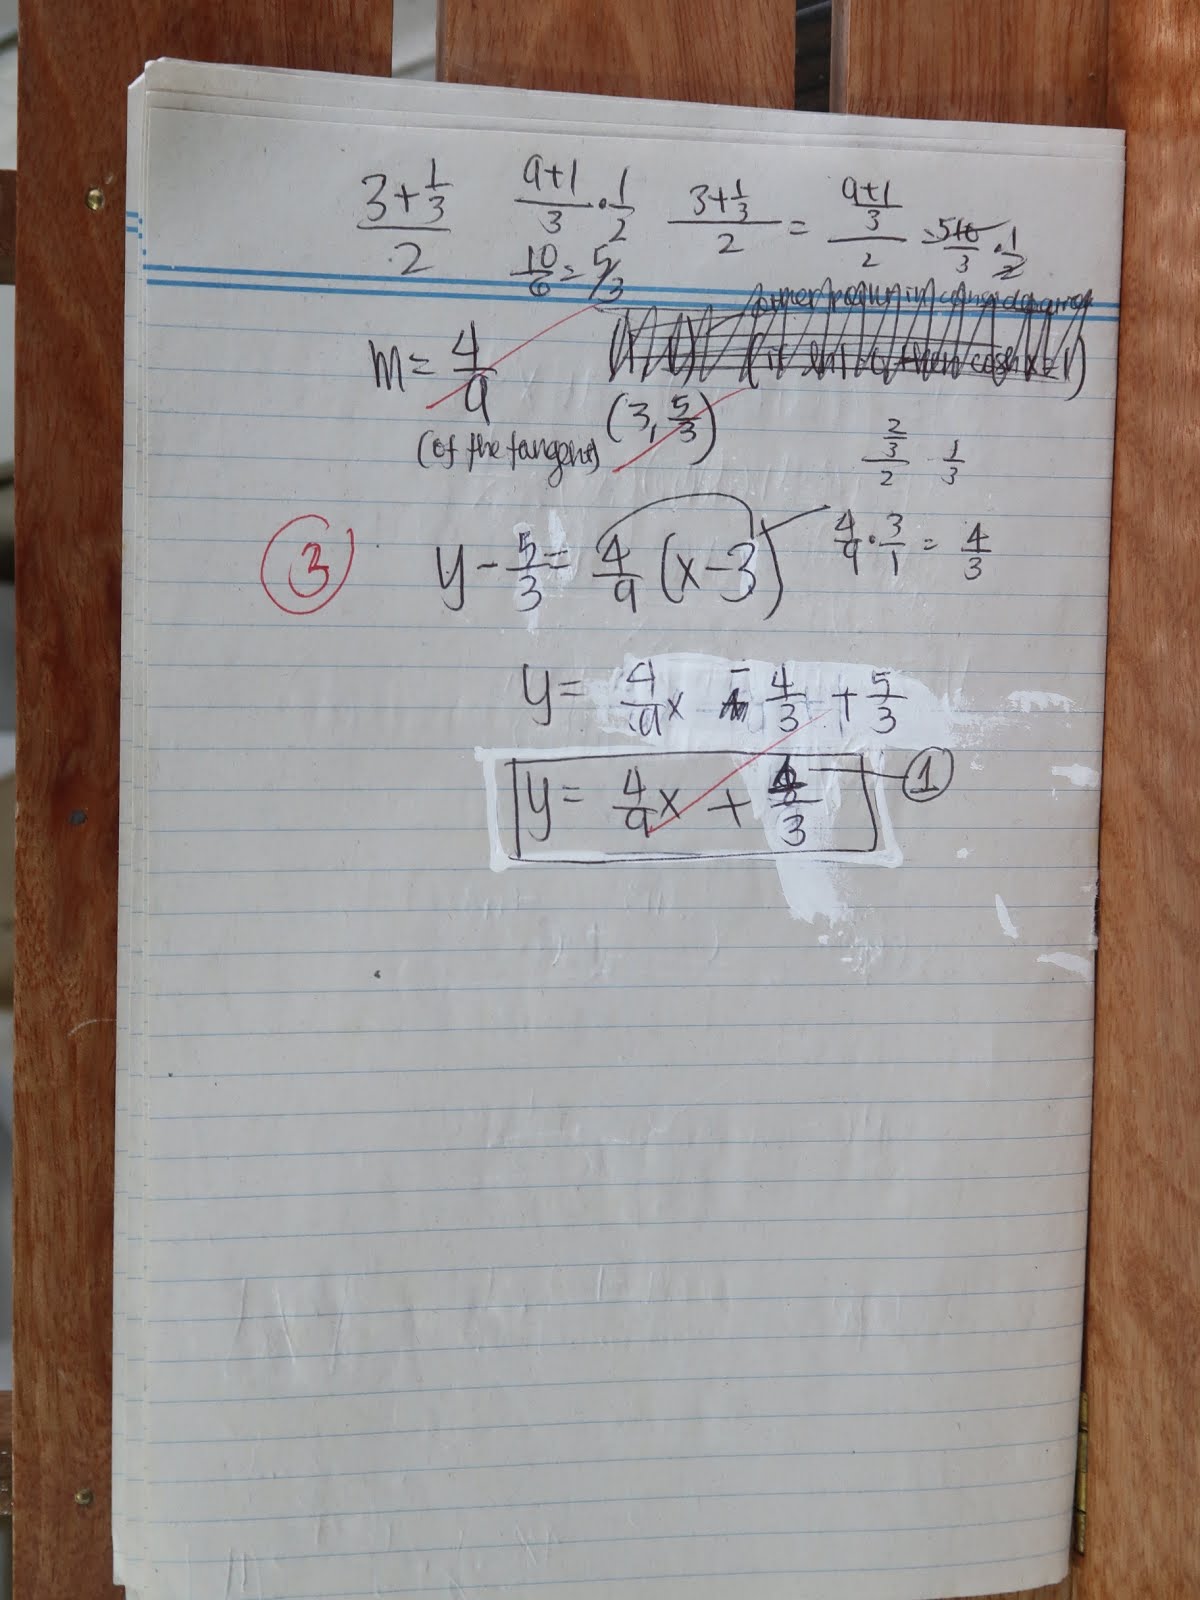 3+1/3 / 2   9+1/3 · 1/2   3+1/3 / 2 = 9+1/3 / 2
10/6 = 5/3
m = 4/9
(of the tangent)
(3, 5/3)
2/3 / 2   1/3
③   y - 5/3 = 4/9 (x-3)   4/9 · 3/1 = 4/3
y = 4/9 x - 4/3 + 5/3
y = 4/9 x + /3   ①